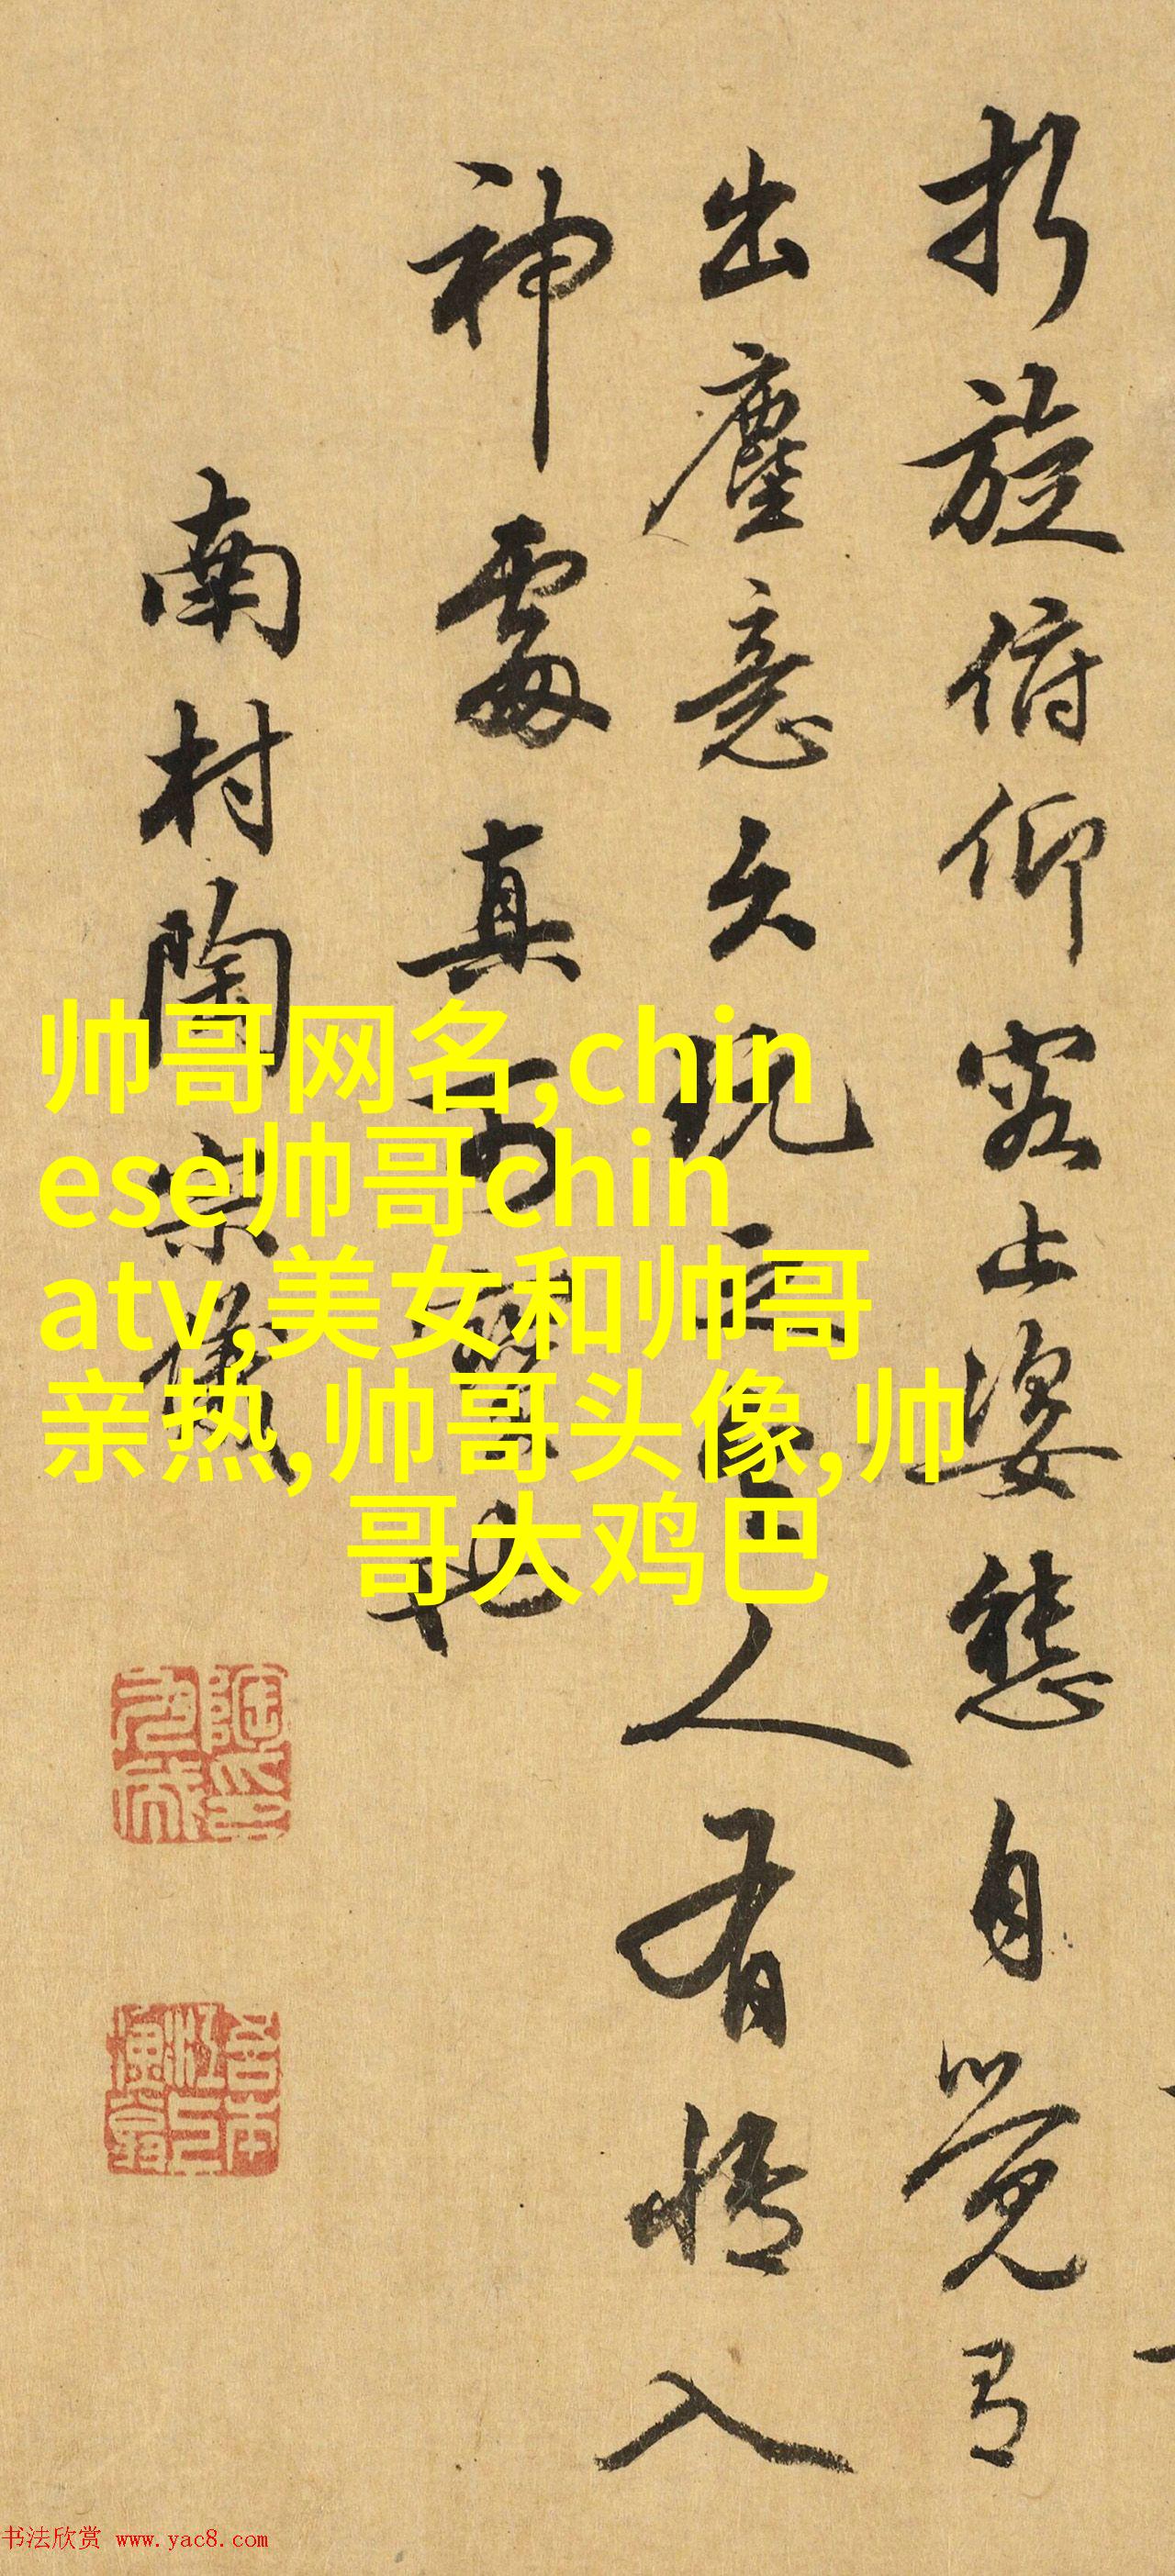 折旋俯仰容止姿態自覺有
出塵意久玩之令人有悟入
神處真可寶也
南村陶宗儀
帅哥网名,chin
ese帅哥chin
atv,美女和帅哥
亲热,帅哥头像,帅
哥大鸡巴
书法欣赏 www.yac8.com